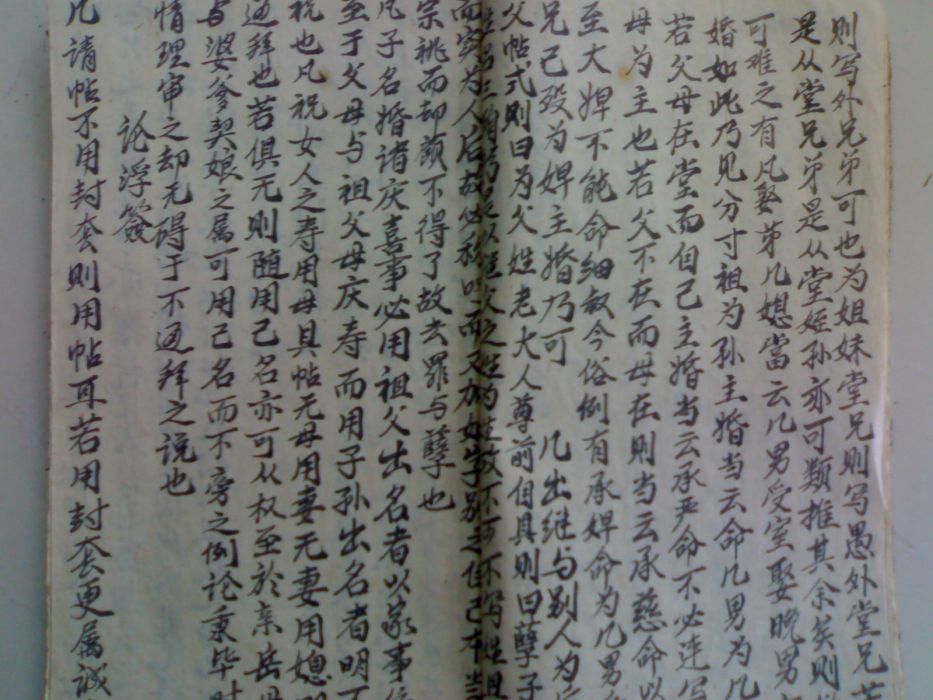 则写外兄弟可也为姐妹堂兄则写愚外堂兄
是从堂兄弟是从堂姪孙亦可类推其余矣则
可难之有凡娶第几媳當云几男受室娶晚男
婚如此乃见分寸祖为孙主婚当云命几男为几
若父母在堂而自己主婚当云承严命不必连写
母为主也若父不在而母在则当云承慈命以
至大婢不能命细叙今俗例有承婢命为几男
兄已殁为婢主婚乃可 凡出继与别人为
父帖式则曰为父姓老大人尊前自具则曰孽子
而实为人后故必称 而又加 字别之但己本
宗祧而却颜不得了故去罪与孽也
凡子名婚诸庆喜事必用祖父出名者以家事
至于父母与祖父母庆寿而用子孙出名者明
祝也凡祝女人之寿用母具帖无母用妻无妻用媳
通拜也若俱无则随用己名亦可从权至於亲岳母
与婆爹契娘之属可用己名而不旁之例论秉毕
情理审之却无碍于不通拜之说也
论浮簽
凡请帖不用封套则用帖耳若用封套更属诚